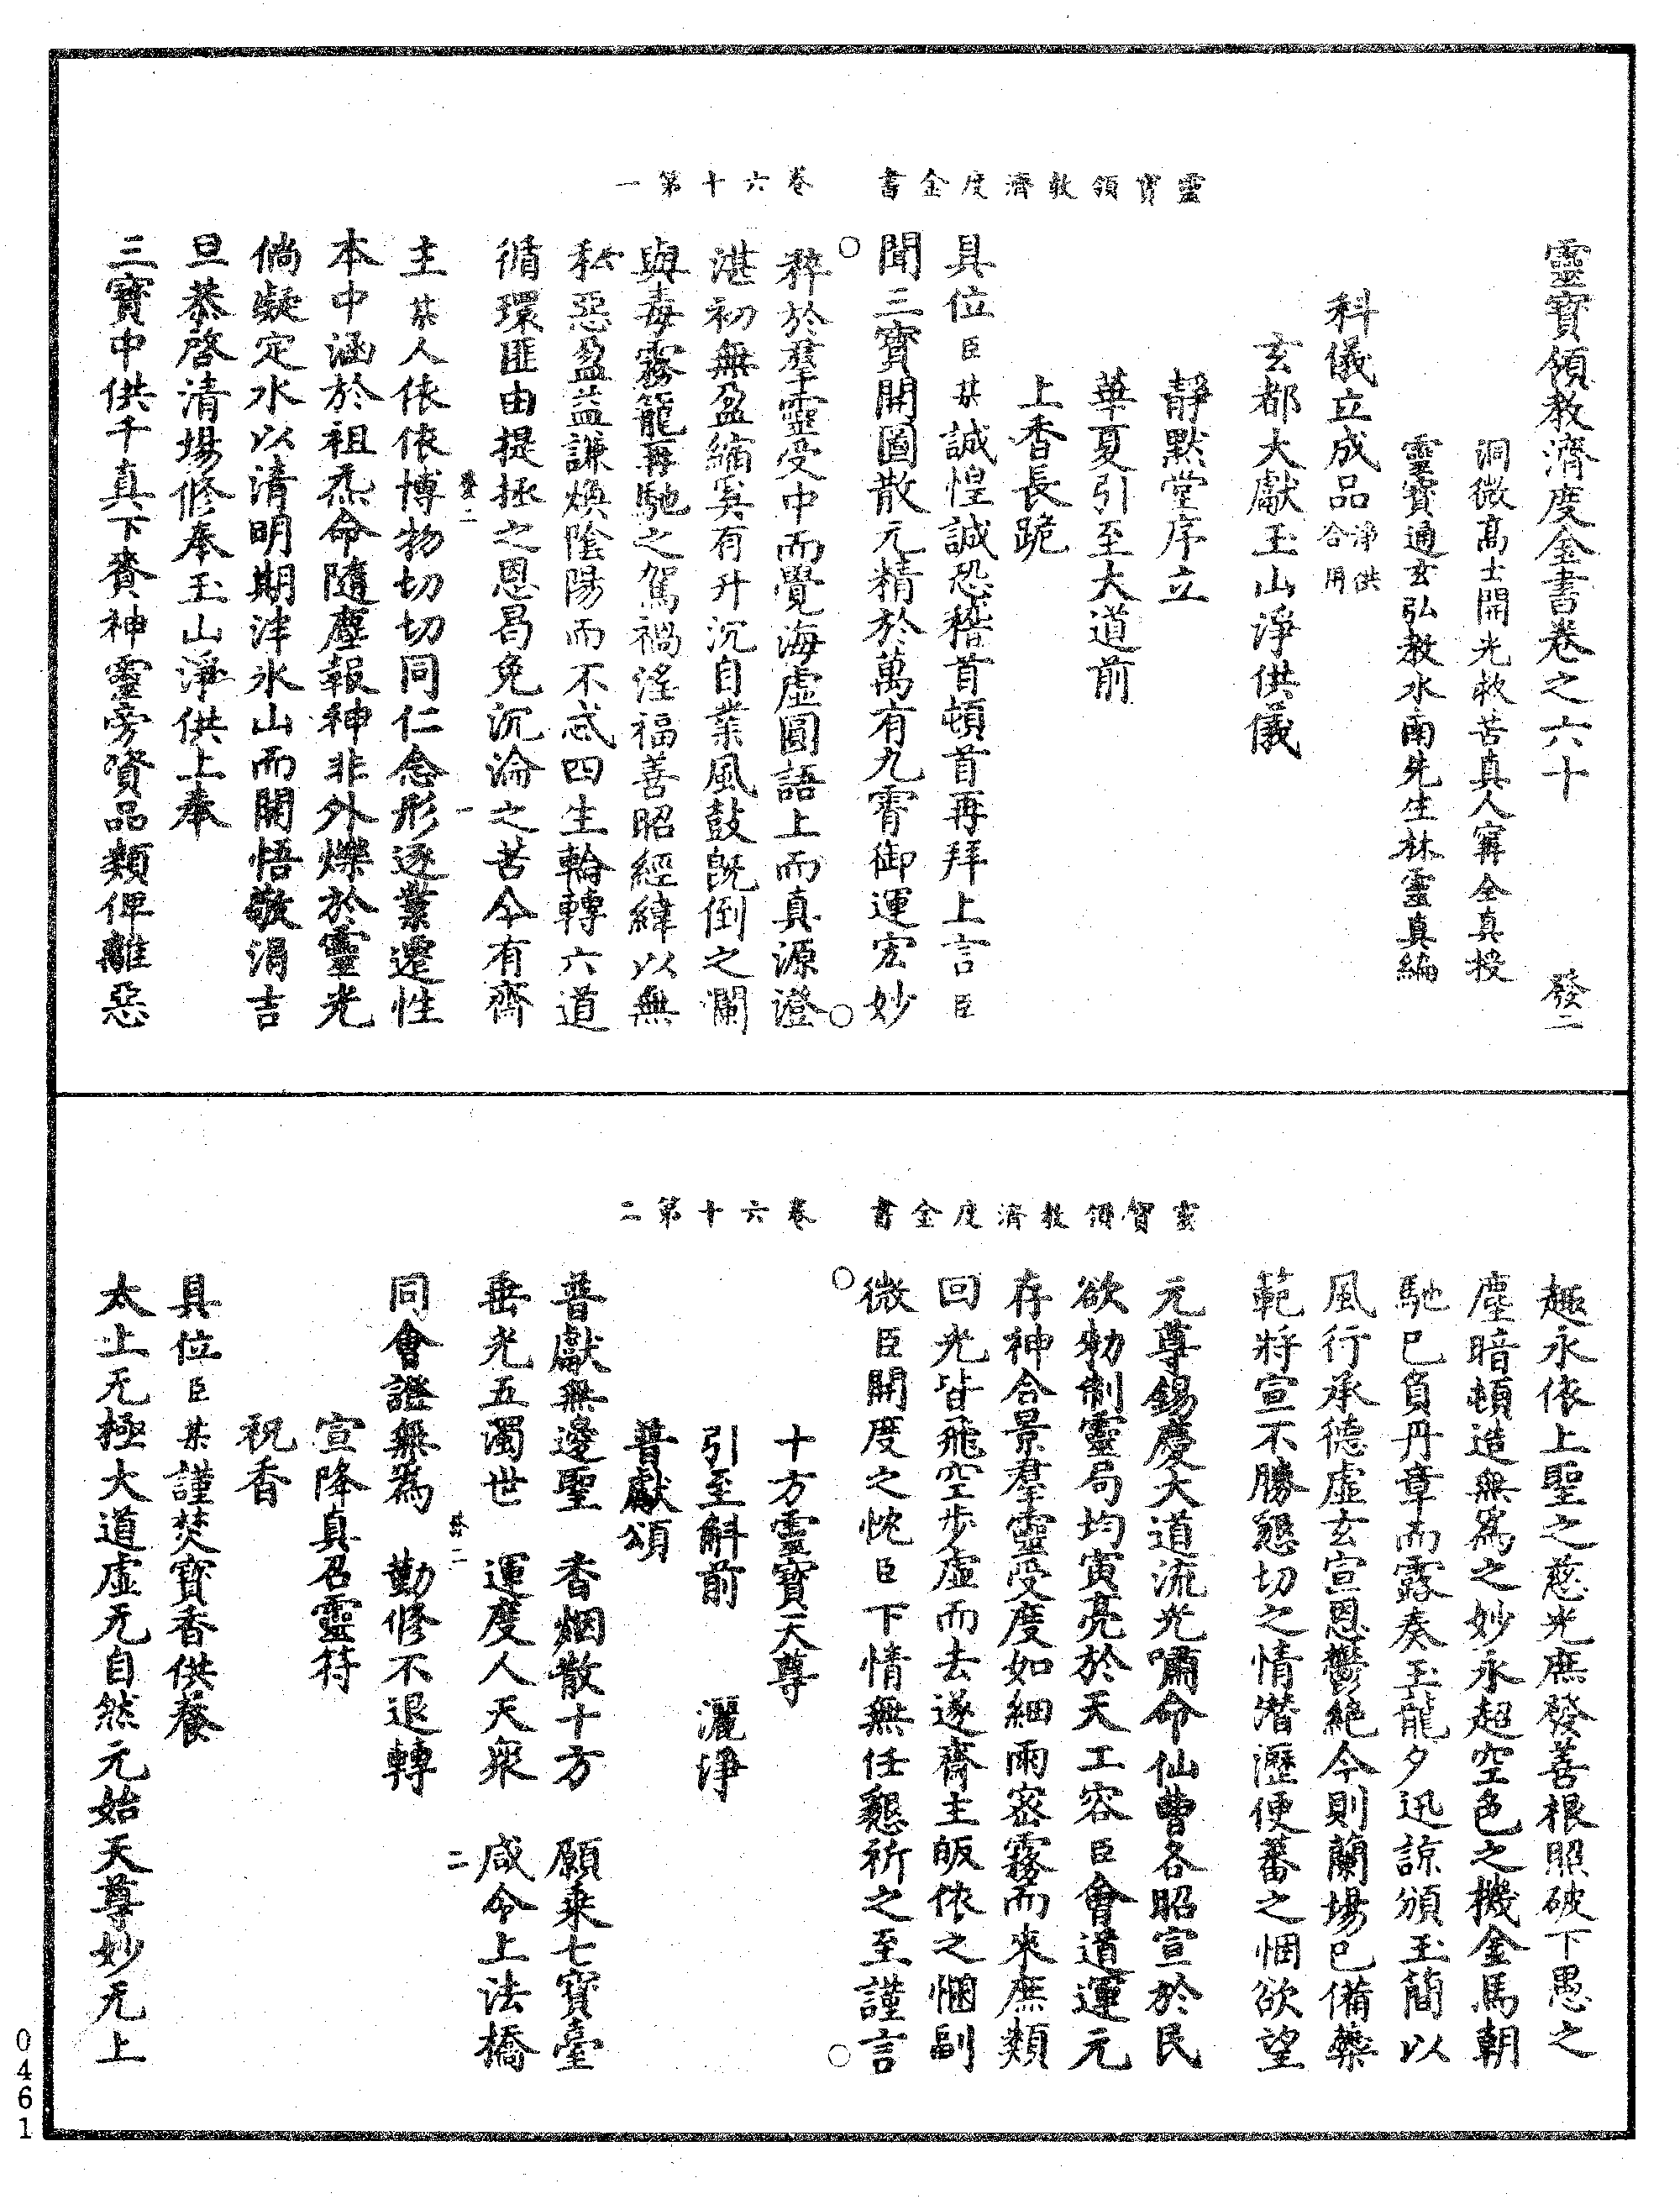 靈寶領教濟度金書　卷六十第一
靈寶領教濟度金書卷之六十　發二
洞微高士開光救苦真人甯全真授
靈寶通玄弘教水南先生林靈真編
科儀立成品淨供合用
玄都大獻玉山淨供儀
靜默堂序立
華夏引至大道前
上香長跪
具位臣某誠惶誠恐稽首頓首再拜上言臣
聞三寶開圖散元精於萬有九霄御運宏妙
○粹於羣靈受中而覺海虛圓語上而真源澄○
湛初無盈縮奚有升沉自業風鼓旣倒之瀾
與毒霧籠再馳之駕禍淫福善昭經緯以無
私惡盈益謙煥陰陽而不忒四生輪轉六道
循環匪由提拯之恩曷免沉淪之苦今有齊
發二　一
主某人依依博物切切同仁念形逐業遷性
本中涵於祖炁命隨塵報神非外爍於靈光
倘凝定水以清明期泮氷山而開悟敬涓吉
旦恭啓清場修奉玉山淨供上奉
三寶中供千真下賚神靈旁資品類俾離惡
靈寶領教濟度金書　卷六十第二
趣永依上聖之慈光庶發善根照破下愚之
塵暗頓造無爲之妙永超空色之機金馬朝
馳已負丹章而露奏玉龍夕迅諒頒玉簡以
風行承德虛玄宣恩鬱絶今則蘭場已備蘂
範將宣不勝懇切之情潛瀝便蕃之悃欲望
元尊錫慶大道流光嘯命仙曹各昭宣於民
欲勑制靈局均寅亮於天工容臣會道運元
存神合景羣靈受度如細雨密霧而來庶類
回光皆飛空步虛而去遂齋主皈依之悃副
○微臣開度之忱臣下情無任懇祈之至謹言○
十方靈寶天尊
引至斛前　灑淨
普獻頌
普獻無邊聖　香烟散十方　願乗七寶臺
垂光五濁世　運度人天衆　咸令上法橋
發二　二
同會證無爲　勤修不退轉
宣降真召靈符
祝香
具位臣某謹焚寶香供養
太上无極大道虛无自然元始天尊妙无上
0461